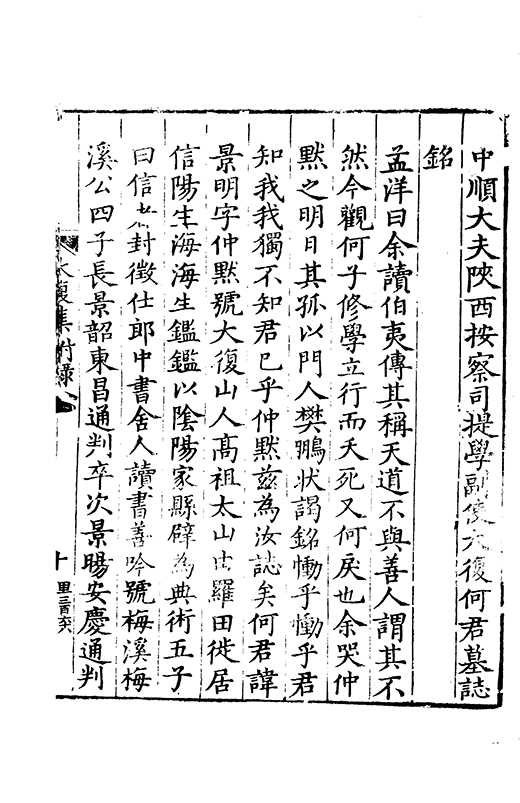 中順大夫陜西按察司提學副使大復何君墓誌
銘
孟洋曰余讀伯夷傳其稱天道不與善人謂其不
然今觀何子修學立行而夭死又何戾也余哭仲
黙之明日其孤以門人樊鵬狀謁銘慟乎慟乎君
知我我獨不知君已乎仲黙兹為汝誌矣何君諱
景明字仲黙號大復山人高祖太山由羅田徙居
信陽生海海生鑑鑑以隂陽家縣辟為典術五子
曰信者封徵仕郎中書舍人讀書善吟號梅溪梅
溪公四子長景韶東昌通判卒次景暘安慶通判
大復集附録
十